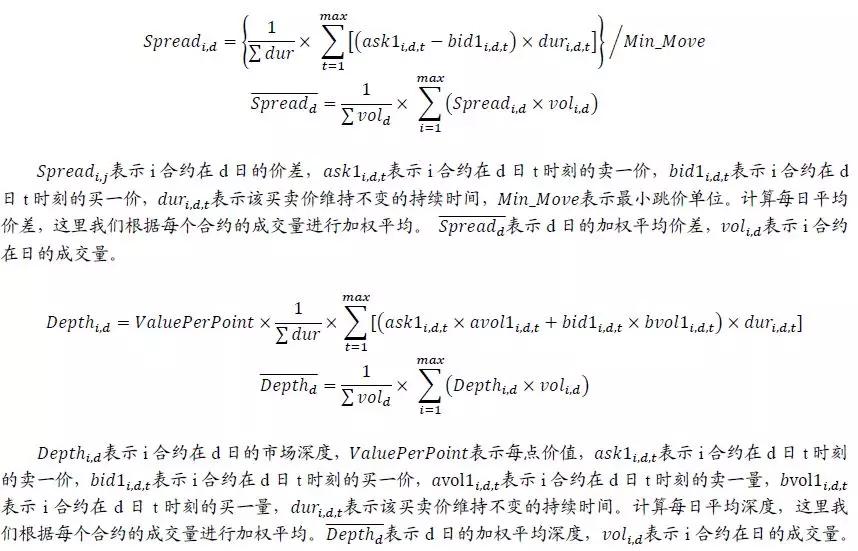 Spread_{i,d} = {\frac{1}{\sum dur} × \sum_{t=1}^{max} [(ask1_{i,d,t} − bid1_{i,d,t}) × dur_{i,d,t}]} / Min_Move
\overline{Spread_d} = \frac{1}{\sum vol_d} × \sum_{i=1}^{max} (Spread_{i,d} × vol_{i,d})
Spread_{i,j}表示 i 合约在 d 日的价差，ask1_{i,d,t}表示 i 合约在 d 日 t 时刻的卖一价，bid1_{i,d,t}表示 i 合约在 d
日 t 时刻的买一价，dur_{i,d,t}表示该买卖价维持不变的持续时间，Min_Move表示最小跳价单位。计算每日平均
价差，这里我们根据每个合约的成交量进行加权平均。 \overline{Spread_d}表示 d 日的加权平均价差，vol_{i,d}表示 i 合约
在日的成交量。
Depth_{i,d} = ValuePerPoint × \frac{1}{\sum dur} × \sum_{t=1}^{max} [(ask1_{i,d,t} × avol1_{i,d,t} + bid1_{i,d,t} × bvol1_{i,d,t}) × dur_{i,d,t}]
\overline{Depth_d} = \frac{1}{\sum vol_d} × \sum_{i=1}^{max} (Depth_{i,d} × vol_{i,d})
Depth_{i,d}表示 i 合约在 d 日的市场深度，ValuePerPoint表示每点价值，ask1_{i,d,t}表示 i 合约在 d 日 t 时刻
的卖一价，bid1_{i,d,t}表示 i 合约在 d 日 t 时刻的买一价，avol1_{i,d,t}表示 i 合约在 d 日 t 时刻的卖一量，bvol1_{i,d,t}
表示 i 合约在 d 日 t 时刻的买一量，dur_{i,d,t}表示该买卖价维持不变的持续时间。计算每日平均深度，这里我
们根据每个合约的成交量进行加权平均。\overline{Depth_d}表示 d 日的加权平均深度，vol_{i,d}表示 i 合约在日的成交量。